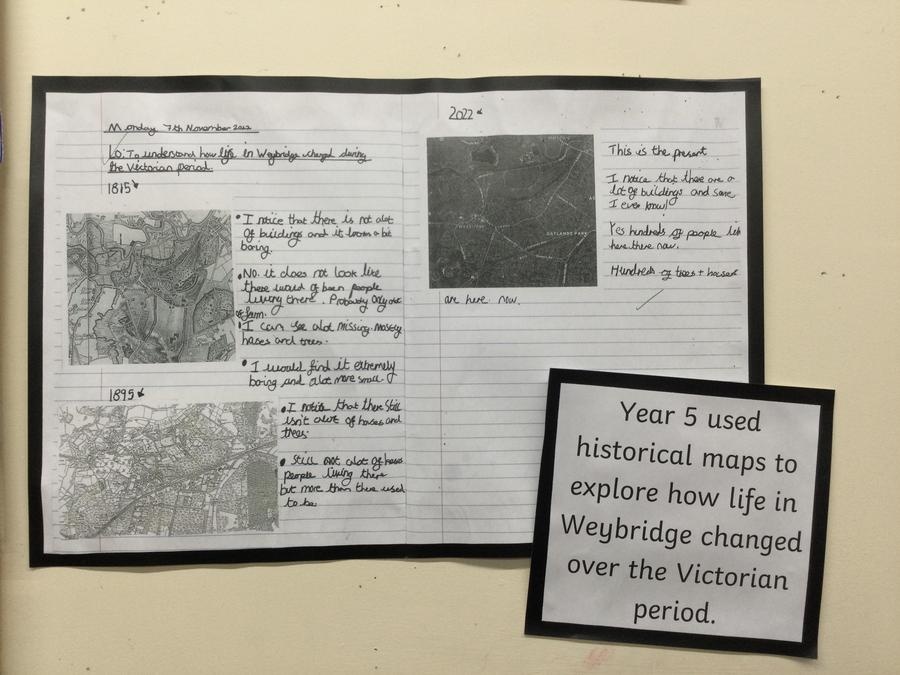 Monday 7th November 2022
LO: To understand how life in Weybridge changed during
the Victorian period.
1815
• I notice that there is not alot
of buildings and it looks a bit
boring.
• No. it does not look like
there would of been people
living there. Probably only out
of farm.
• I can see alot missing. mostly
hoses and trees.
• I would find it extremely
boring and alot more small.
1895
• I notice that there still
isn't alot of hoses and
trees.
• Still not alot of
people living there
but more than there used
to be.
2022
OATLANDS PARK
This is the present
I notice that there are a
lot of buildings and some
I even know!
Yes hundreds of people
here there now.
Hundreds of trees + houses
are here now.
Year 5 used
historical maps to
explore how life in
Weybridge changed
over the Victorian
period.